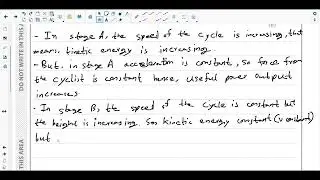 - In stage A, the speed of the cycle is increasing, that
means kinetic energy is increasing.
- But in stage A acceleration is constant, so force from
the cyclist is constant hence, useful power output
increases
- In stage B, the speed of the cycle is constant but
the height is increasing. So, kinetic energy constant (v constant)
but
DO NOT WRITE IN THIS
THIS AREA